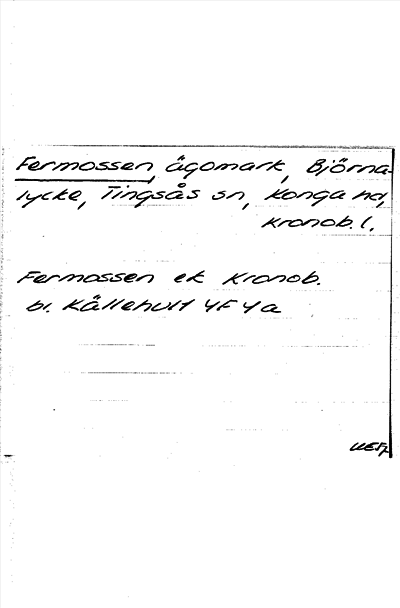 Fermossen, ägomark, Björna-
lycke, Tingsås sn, Konga hd,
Kronob. l.
Fermossen ek Kronob.
bl. Källehult 4F 4a